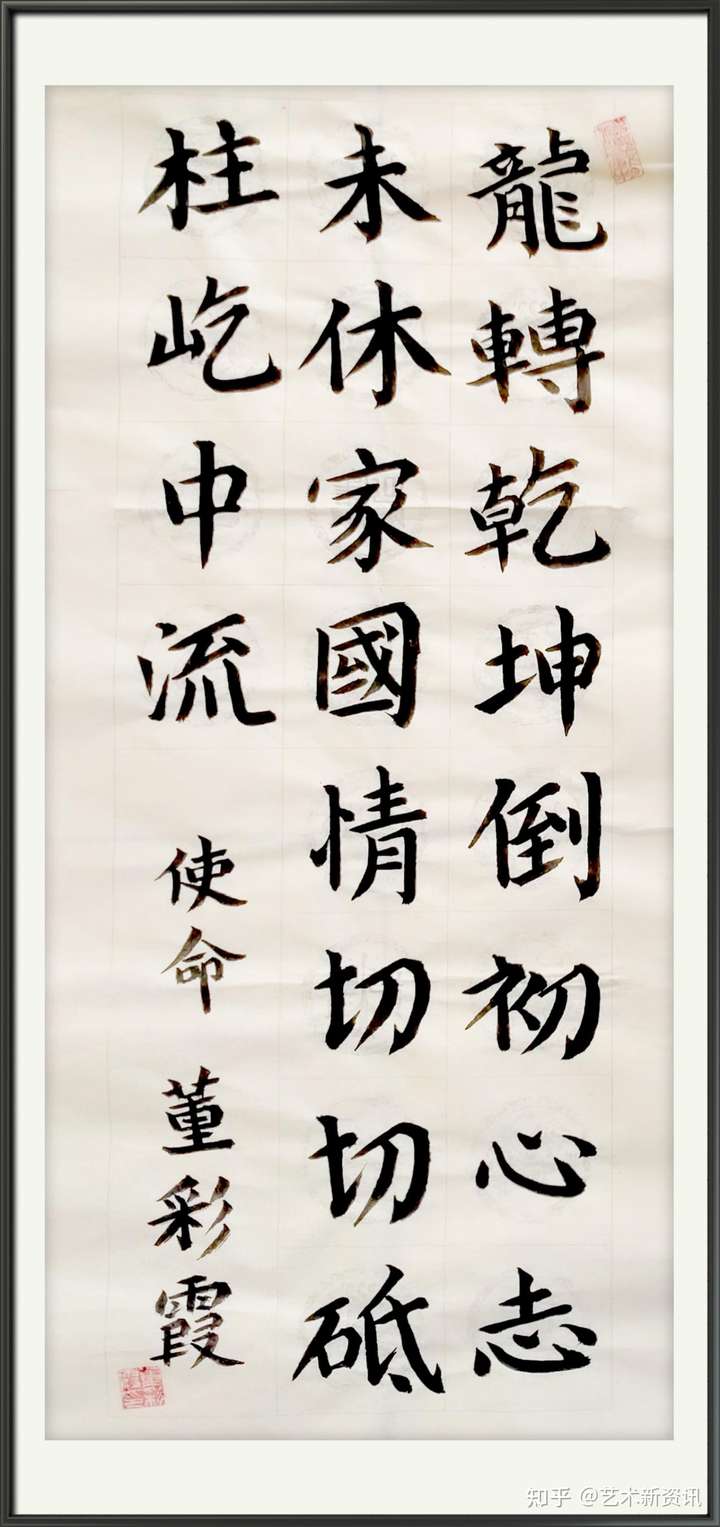 龍轉乾坤倒初心志
未休家國情切切砥
柱屹中流
使命 董彩霞
知乎 @艺术新资讯